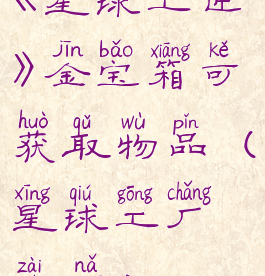 《星球工匠
jīn bǎo xiāng kě
》金宝箱可
huò qǔ wù pǐn
获取物品（
xīng qiú gōng chǎng
星球工厂
zài nǎ